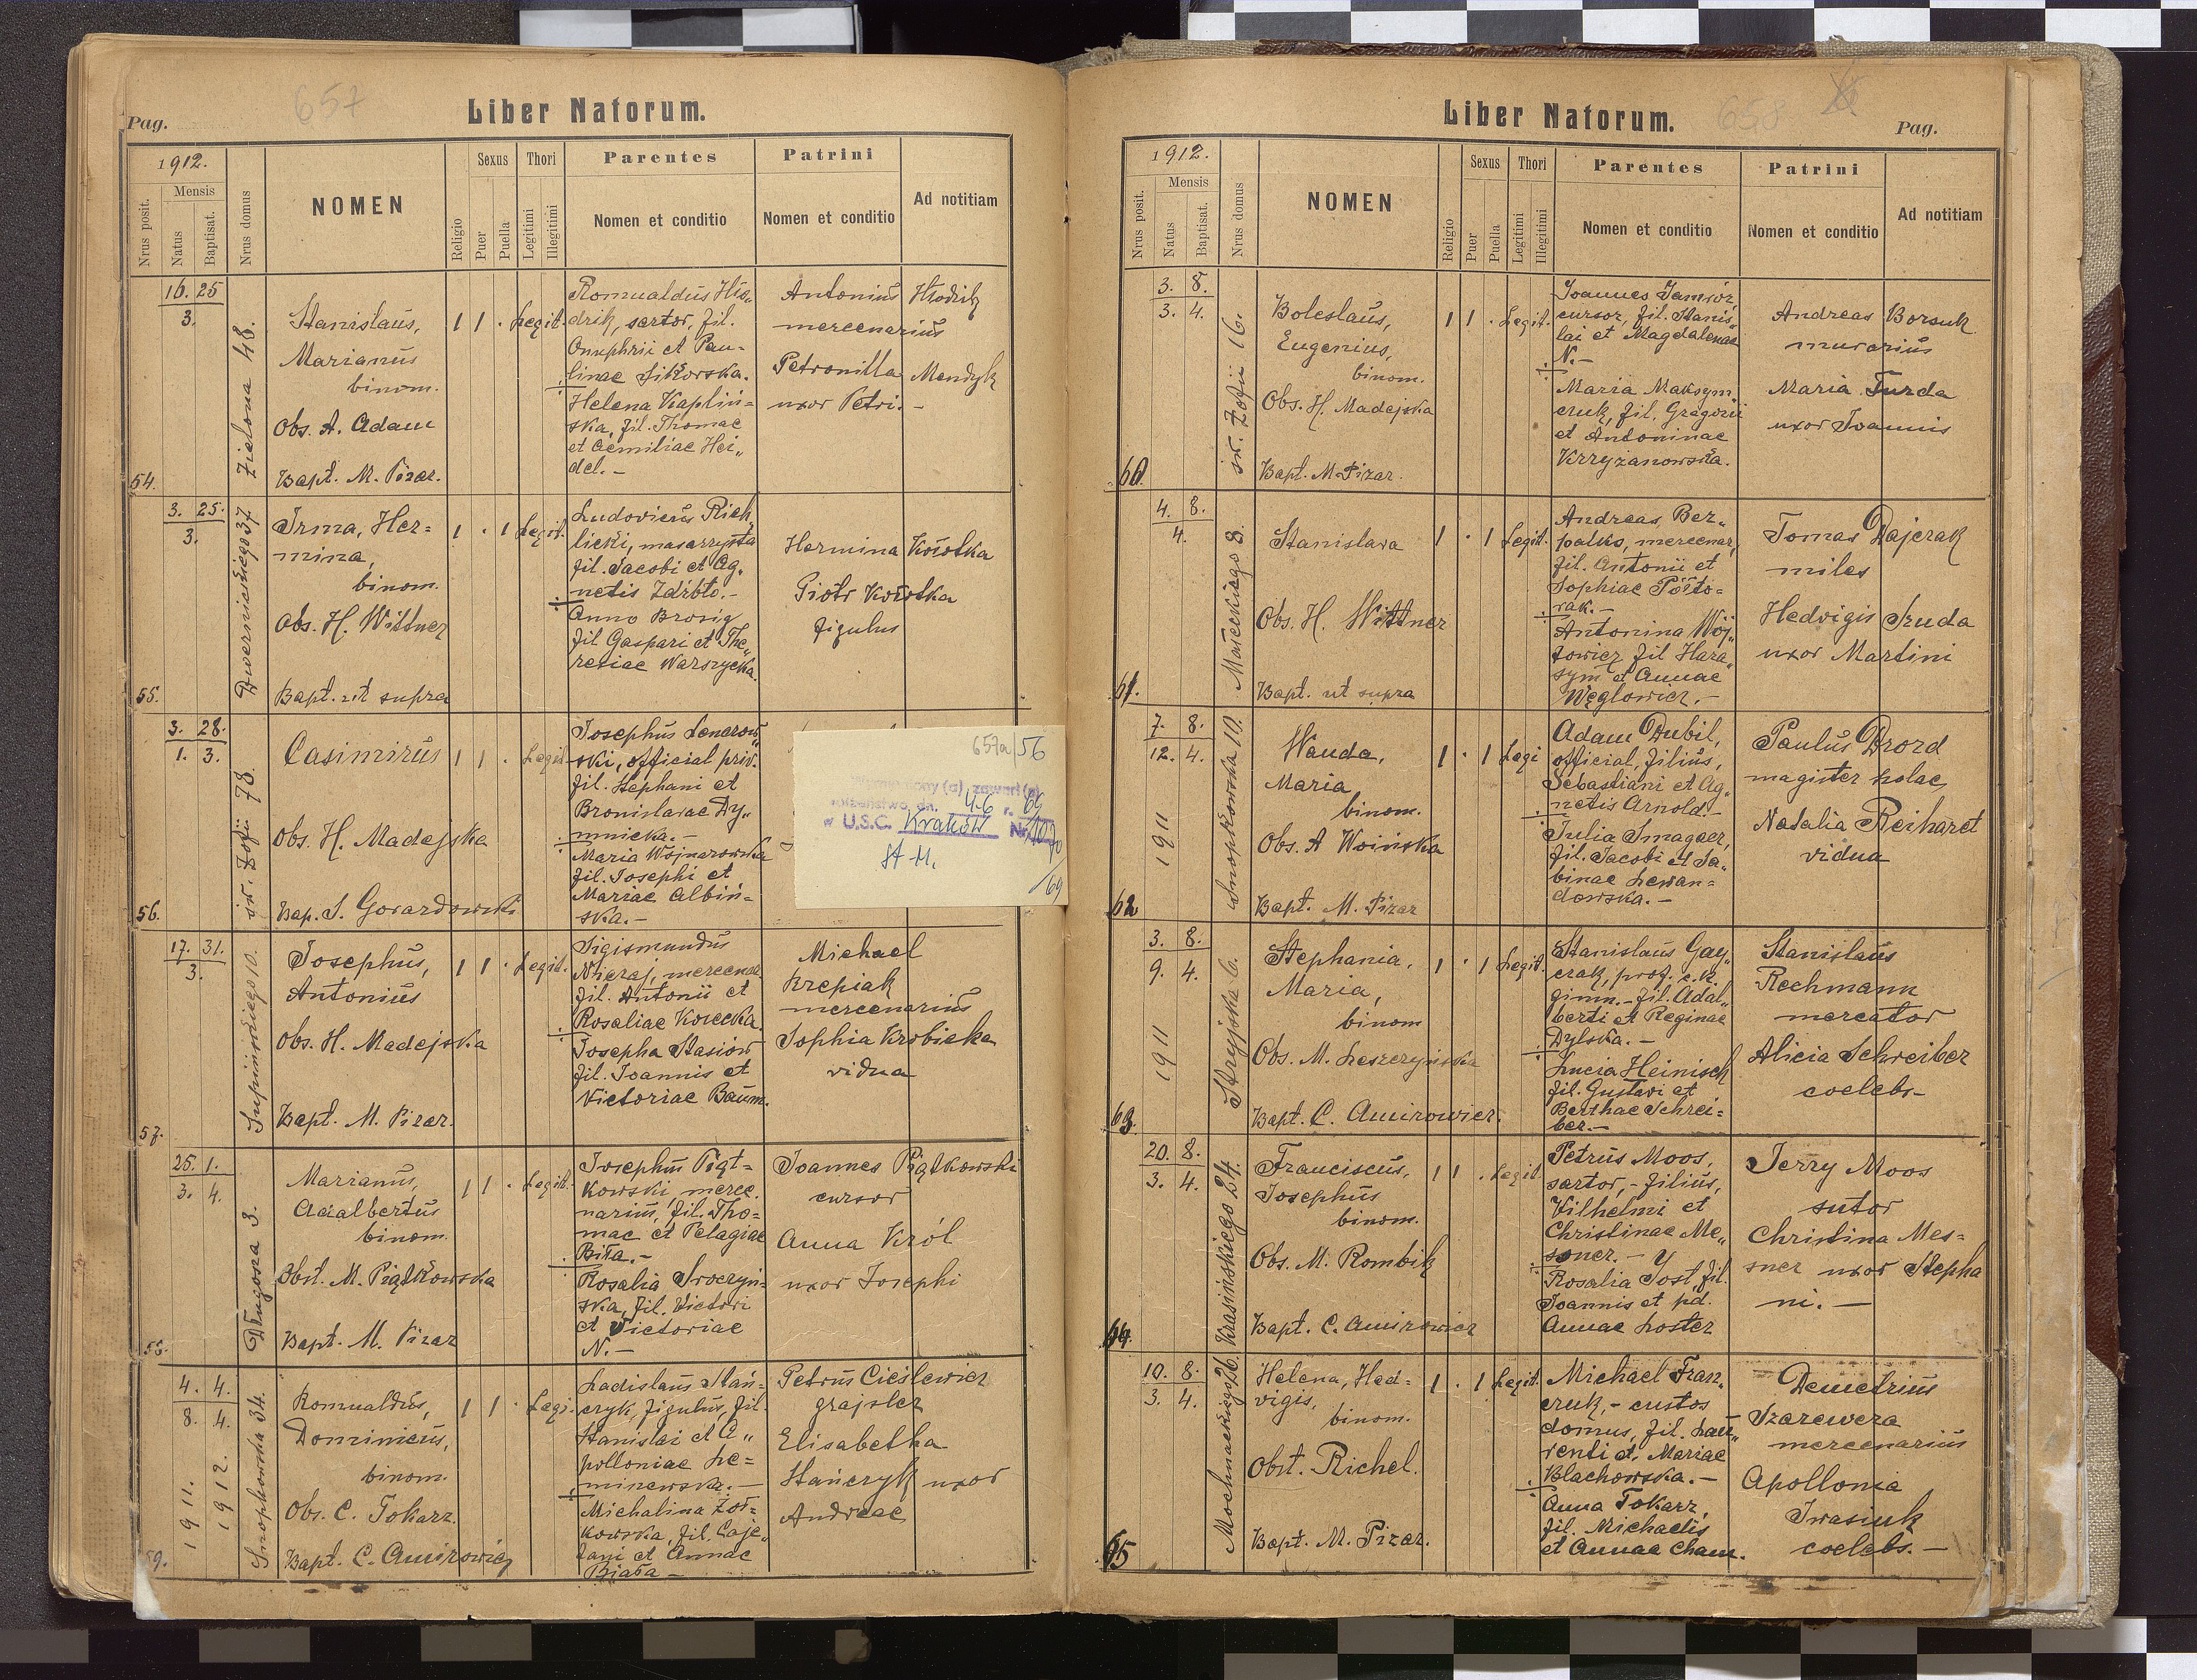 657
Liber Natorum.
Pag.
1912.
Mensis
Nrus posit.
Natus
Baptisat.
Nrus domus
NOMEN
Religio
Sexus
Puer
Puella
Thori
Legitimi
Illegitimi
Parentes
Nomen et conditio
Patrini
Nomen et conditio
Ad notitiam
54.
16. 25
3.
Zielona 48.
Stanislaus,
Marianus
binom.
Obs. A. Adam
Bapt. M. Pizar.
1 1 . Legit.
Romualdus Hło„
drik, sartor, fil.
Onuphrii et Pau-
linae Sikorska.
Helena Kapliń=
ska, fil. Thomae
et Aemiliae Hei„
del. –
Antonius Hłodik
mercenarius
Petronilla Mendyk
uxor Petri. –
55.
3. 25.
3.
Dwernickiego 37
Irma, Her=
mina,
binom.
Obs. H. Wittner
Bapt. ut supra
1 . 1 Legit.
Ludovicus Rich„
licki, masarzysta
fil. Jacobi et Ag„
netis Zdrbło. –
Anna Bronig
fil Gaspari et The„
resiae Warszycka.
Hermina Kołotka
Piotr Kołotka
figulus
56.
3. 28.
1. 3.
św. Zofii 78.
Casimirus
Obs. H. Madejska
Bap. S. Gorazdowski
1 1 . Legit.
Josephus Lenarow„
ski, official priv.
fil. Stephani et
Bronislavae Dy„
mnicka. –
Maria Wojnarowska
fil. Josephi et
Mariae Albiń-
ska. –
657a/56
(a) zawarł (a)
małżeństwo dn. 4.6 r. 69
w U.S.C. Kraków Nr 1070
/69
St. M.
57.
17. 31.
3.
Supińskiego 10.
Josephus,
Antonius
Obs. H. Madejska
Bapt. M. Pizar.
1 1 . Legit.
Sigismundus
Nieraj, mercenar.
fil. Antonii et
Rosaliae Korecka.
Josepha Stasiów
fil. Joannis et
Victoriae Baum.
Michael
Krepiak
mercenarius
Sophia Krobicka
vidua
58.
25. 1.
3. 4.
Długosza 3.
Marianus,
Adalbertus
binom.
Obst. M. Piątkowska
Bapt. M. Pizar
1 1 . Legit.
Josephus Piąt=
kowski, merce„
narius, fil. Tho=
mae et Pelagiae
Biła. –
Rosalia Sroczyń-
ska, fil. Victori
et Victoriae
N. –
Joannes Piątkowski
cursor
Anna Król
uxor Josephi
59.
4. 4.
8. 4.
1911. 1912.
Snopkowska 34.
Romualdus,
Dominicus,
binom.
Obs. C. Tokarz.
Bapt. C. Amirowicz
1 1 . Legi.
Ladislaus Stań-
czyk, figulus, fil.
Stanislai et A„
polloniae Le=
minewska. –
Michalina Żół=
kowska, fil. Caje„
tani et Annae
Biała –
Petrus Cieślewicz
grajsler
Elisabetha
Stańczyk uxor
Andreae
Liber Natorum.
658
Pag.
1912.
Mensis
Nrus posit.
Natus
Baptisat.
Nrus domus
NOMEN
Religio
Sexus
Puer
Puella
Thori
Legitimi
Illegitimi
Parentes
Nomen et conditio
Patrini
Nomen et conditio
Ad notitiam
60.
3. 8.
3. 4.
św. Zofii 16.
Boleslaus,
Eugenius,
binom.
Obs. H. Madejska
Bapt. M. Pizar.
1 1 . Legit.
Joannes Jawor,
cursor, fil. Stanis„
lai et Magdalenae
N. –
Maria Maksym„
czuk, fil. Gregorii
et Antoninae
Krzyżanowska.
Andreas Borsuk
murarius
Maria Furda
uxor Joannis
61.
4. 8.
4.
Małeckiego 3.
Stanislava
Obs. H. Wittner
Bapt. ut supra
1 . 1 Legit.
Andreas Ber„
palko, mercenar,
fil. Antonii et
Sophiae Półto=
rak. –
Antonina Woj„
towicz fil Hara„
sym et Annae
Węglowicz. –
Tomas Dajczak
miles
Hedvigis Sruda
uxor Martini
62
7. 8.
12. 4.
1911
Snopkowska 10.
Wanda,
Maria
binom.
Obs. A Woińska
Bapt. M. Pizar
1 . 1 Legi
Adam Dubil,
official, filius,
Sebastiani et Ag„
netis Arnold. –
Julia Smagacz,
fil. Jacobi et Sa„
binae Lewan=
dowska. –
Paulus Drozd
magister kolae,
Natalia Reihardt
vidua
63.
3. 8.
9. 4.
1911
Stryjska 6.
Stephania,
Maria,
binom
Obs. M. Leszczyńska
Bapt. C. Amirowicz.
1 . 1 Legit.
Stanislaus Gay„
czak, prof. c. k.
gimn. – fil. Adal„
berti et Reginae
Dylska. –
Lucia Heinisch
fil. Gustavi et
Berthae Schrei=
ber. –
Stanislaus
Rechmann
mercator
Alicia Schreiber
coelebs –
64.
20. 8.
3. 4.
Krasińskiego 24.
Franciscus,
Josephus
binom.
Obs. M. Rombik
Bapt. C. Amirowicz
1 1 . Legit
Petrus Moos,
sartor, – filius,
Vilhelmi et
Christinae Me„
ssner. –
Rosalia Jost, fil.
Joannis et pd.
Annae Loster
Jerry Moos
sutor
Christina Mes=
sner uxor Stepha
ni. –
65
10. 8.
3. 4.
Mochnackiego 26.
Helena, Hed=
vigis,
binom.
Obst. Richel.
Bapt. M. Pizar.
1 . 1 Legit.
Michael Fran„
czuk, – custos
domus, fil. Lau„
renti et. Mariae
Blachowska. –
Anna Tokarz,
fil. Michaelis
et Annae Cham.
Demetrius
Szarewera
mercenarius
Apollonia
Iwasiuk
coelebs. –